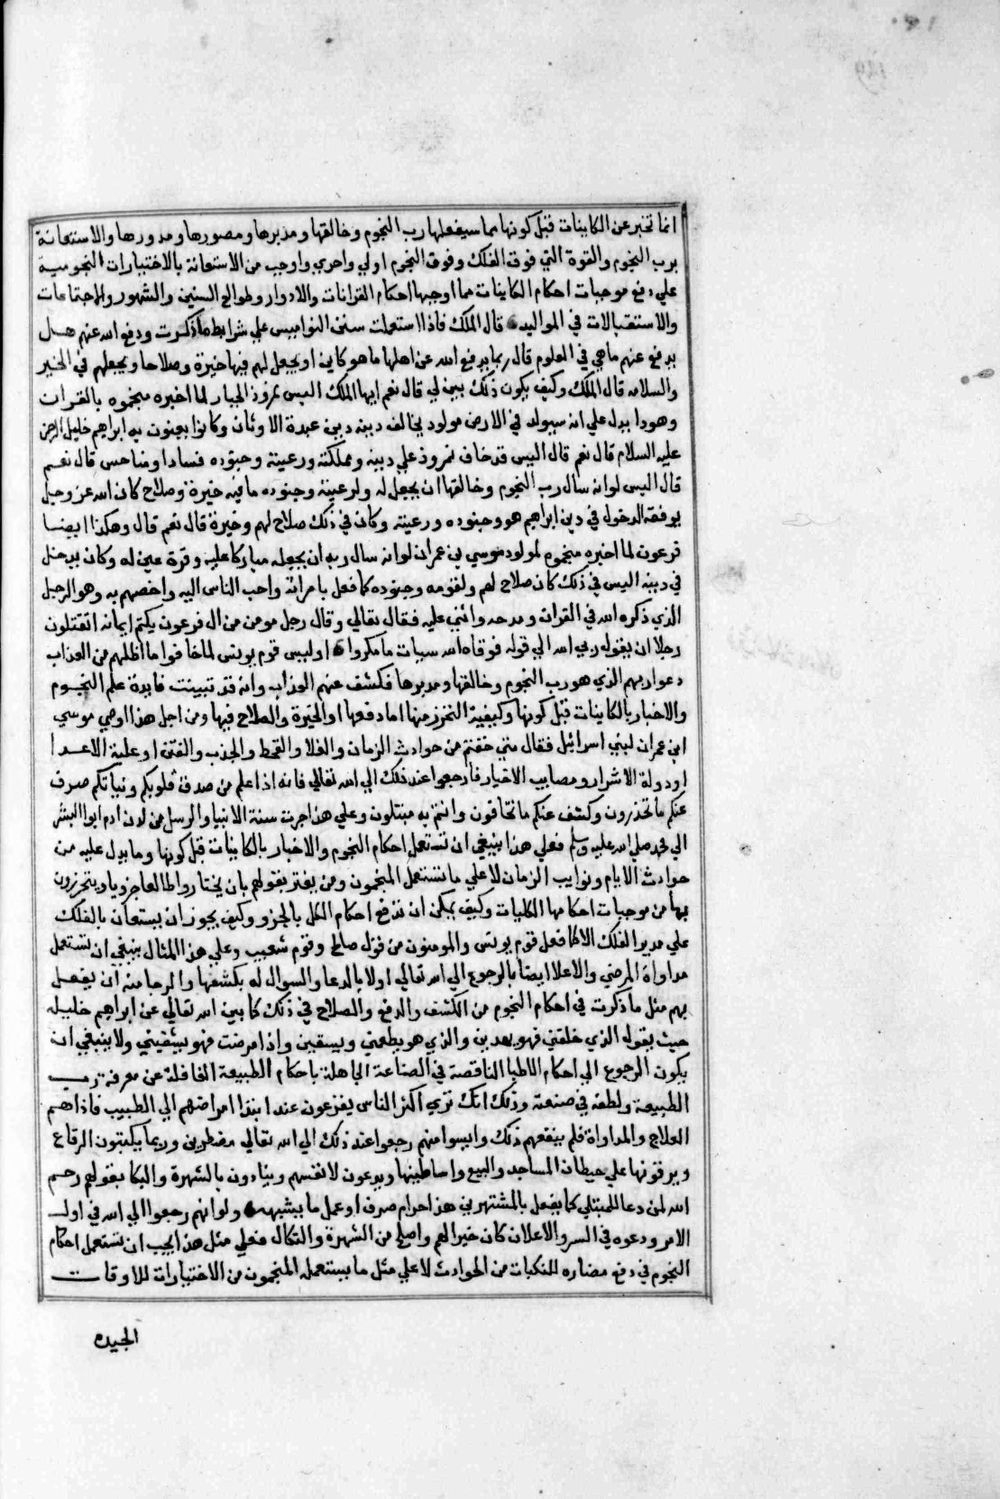 انما تخبر عن الكاينات قبل كونها مما سيفعلها رب النجوم وخالقها ومدبرها ومصورها ومدورها والاستعانة
برب النجوم والقوة التي فوق الفلك وفوق النجوم اولي واحري واوجب من الاستعانة بالاختيارات النجومية
علي دفع موجبات احكام الكاينات مما اوجبها احكام القرانات والادوار وطوالع السنين والشهور والاجتماعات
والاستقبالات في المواليد قال الملك فاذا استعملت سنن النواميس علي شرايط ما ذكرت ودفع الله عنهم هل
يدفع عنهم ما هي في المعلوم قال ربما يدفع الله عن اهلها ما هو كاين او يجعل لهم فيها خيرة وصلاحا ويجعلهم في الخير
والسلامه قال الملك وكيف يكون ذلك بين لي قال نعم ايها الملك اليس نمروذ الجبار لما اخبره منجموه بالقران
وهو دا يدل علي انه سيولد في الارض مولود يخالف دينه دين عبدة الاوثان وكانوا يعنون به ابراهيم خليل الرحمن
عليه السلام قال نعم قال اليس قد خاف نمروذ علي دينه ومملكته ورعيته وجنوده فسادا ومناحس قال نعم
قال اليس لو انه سال رب النجوم وخالقها ان يجعل له ولرعيته وجنوده ما فيه خيرة وصلاح كان الله عز وجل
يوفقه الدخول في دين ابراهيم هو وجنوده ورعيته وكان في ذلك صلاح لهم وخيرة قال نعم قال وهكذا ايضا
فرعون لما اخبره منجموه لمولود موسي بن عمران لو انه سال ربه ان يجعله مباركا عليه وقرة عين له وكان يدخل
في دينه اليس في ذلك كان صلاح لهم ولقومه وجنوده كما فعل بامراته واحب الناس اليه واخصهم به وهو الرجل
الذي ذكره الله في القران ومدحه واثني عليه فقال تعالي وقال رجل مومن من ال فرعون يكتم ايمانه اتقتلون
رجلا ان يقول ربي الله الي قوله فوقاه الله سيات ما مكروا اوليس قوم يونس لما خافوا ما اظلهم من العذاب
دعوا ربهم الذي هو رب النجوم وخالقها ومدبرها فكشف عنهم العذاب وانه قد تبينت فايدة علم النجوم
والاخبار بالكاينات قبل كونها وكيفية التحرز منها اما دفعها او الخيرة والصلاح فيها ومن اجل هذا اوصي موسي
ابن عمران لبني اسرائيل فقال متي خفتم من حوادث الزمان والغلا والقحط والجذب والفتن او غلبة الاعدا
او دولة الاشرار ومصايب الاخيار فارجعوا عند ذلك الي الله تعالي فانه اذا علم من صدق قلوبكم ونياتكم صرف
عنكم ما تحذرون وكشف عنكم ما تخافون وانتم به مبتلون وعلي هذا جرت سنة الانبيا والرسل من لدن ادم ابو البشر
الي محمد صلي الله عليه وسلم فعلي هذا ينبغي ان تستعمل احكام النجوم والاخبار بالكاينات قبل كونها وما يدل عليه من
حوادث الايام ونوايب الزمان لا علي ما تستعمل المنجمون ومن يغتر بقولهم بان يختاروا طالعا جزويا ويتحرزون
بها من موجبات احكامها الكليات وكيف يمكن ان تدفع احكام الكل بالجزو وكيف يجوز ان يستعان بالفلك
علي مدير الفلك الا كما فعل قوم يونس والمومنون من قوم صالح وقوم شعيب وعلي هذا المثال ينبغي ان تستعمل
مداواة المرضي والاعلا ايضا بالرجوع الي الله تعالي اولا بالدعا والسوال له بكشفها والرجا منه ان يفعل
بهم مثل ما ذكرت في احكام النجوم من الكشف والدفع والصلاح في ذلك كما بين الله تعالي عن ابراهيم خليله
حيث بقوله الذي خلقني فهو يهدين والذي هو يطعمني ويسقين واذا مرضت فهو يشفيني ولا ينبغي ان
يكون الرجوع الي احكام الاطبا الناقصة في الصناعة الجاهلة باحكام الطبيعة الغافلة عن معرفة رب
الطبيعة ولطفه في صنعته وذلك انك تري اكثر الناس يفزعون عند ابتدا امراضهم الي الطبيب فاذا هم
العلاج والمداواة فلم ينفعهم ذلك وايسوا منهم رجعوا عند ذلك الي الله تعالي مضطرين وربما يكتبون الرقاع
ويرفونها علي حيطان المساجد والبيع واساطينها ويدعون لانفسهم وينادون بالشهرة والبكا بقولهم رحم
الله لمن دعا للمبتلي كما يفعل بالمشتهرين هذا حرام صرف او عمل ما يشبهه ولو انهم رجعوا الي الله في اول
الامر ودعوه في السر والاعلان كان خيرا لهم واصلح من الشهرة والنكال فعلي مثل هذا يجب ان تستعمل احكام
النجوم في دفع مضاره للنكبات من الحوادث لا علي مثل ما يستعمله المنجمون من الاختيارات للاوقات
الجيده